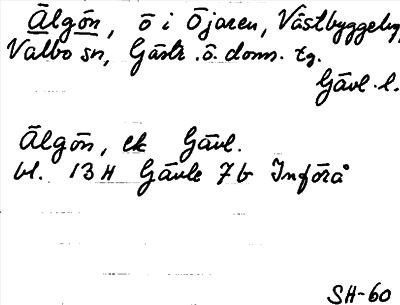 Älgön, ö i Öjaren, Västbyggeby,
Valbo sn, Gästr. ö. doms. tg.
Gävl. l.
Älgön, ek Gävl.
bl. 13 H Gävle 7b Införå
SH-60